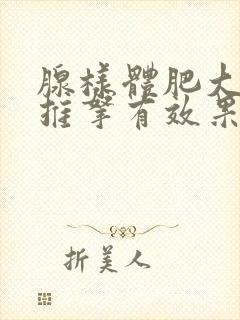 腺樣體肥大
推拏有效果
折美人